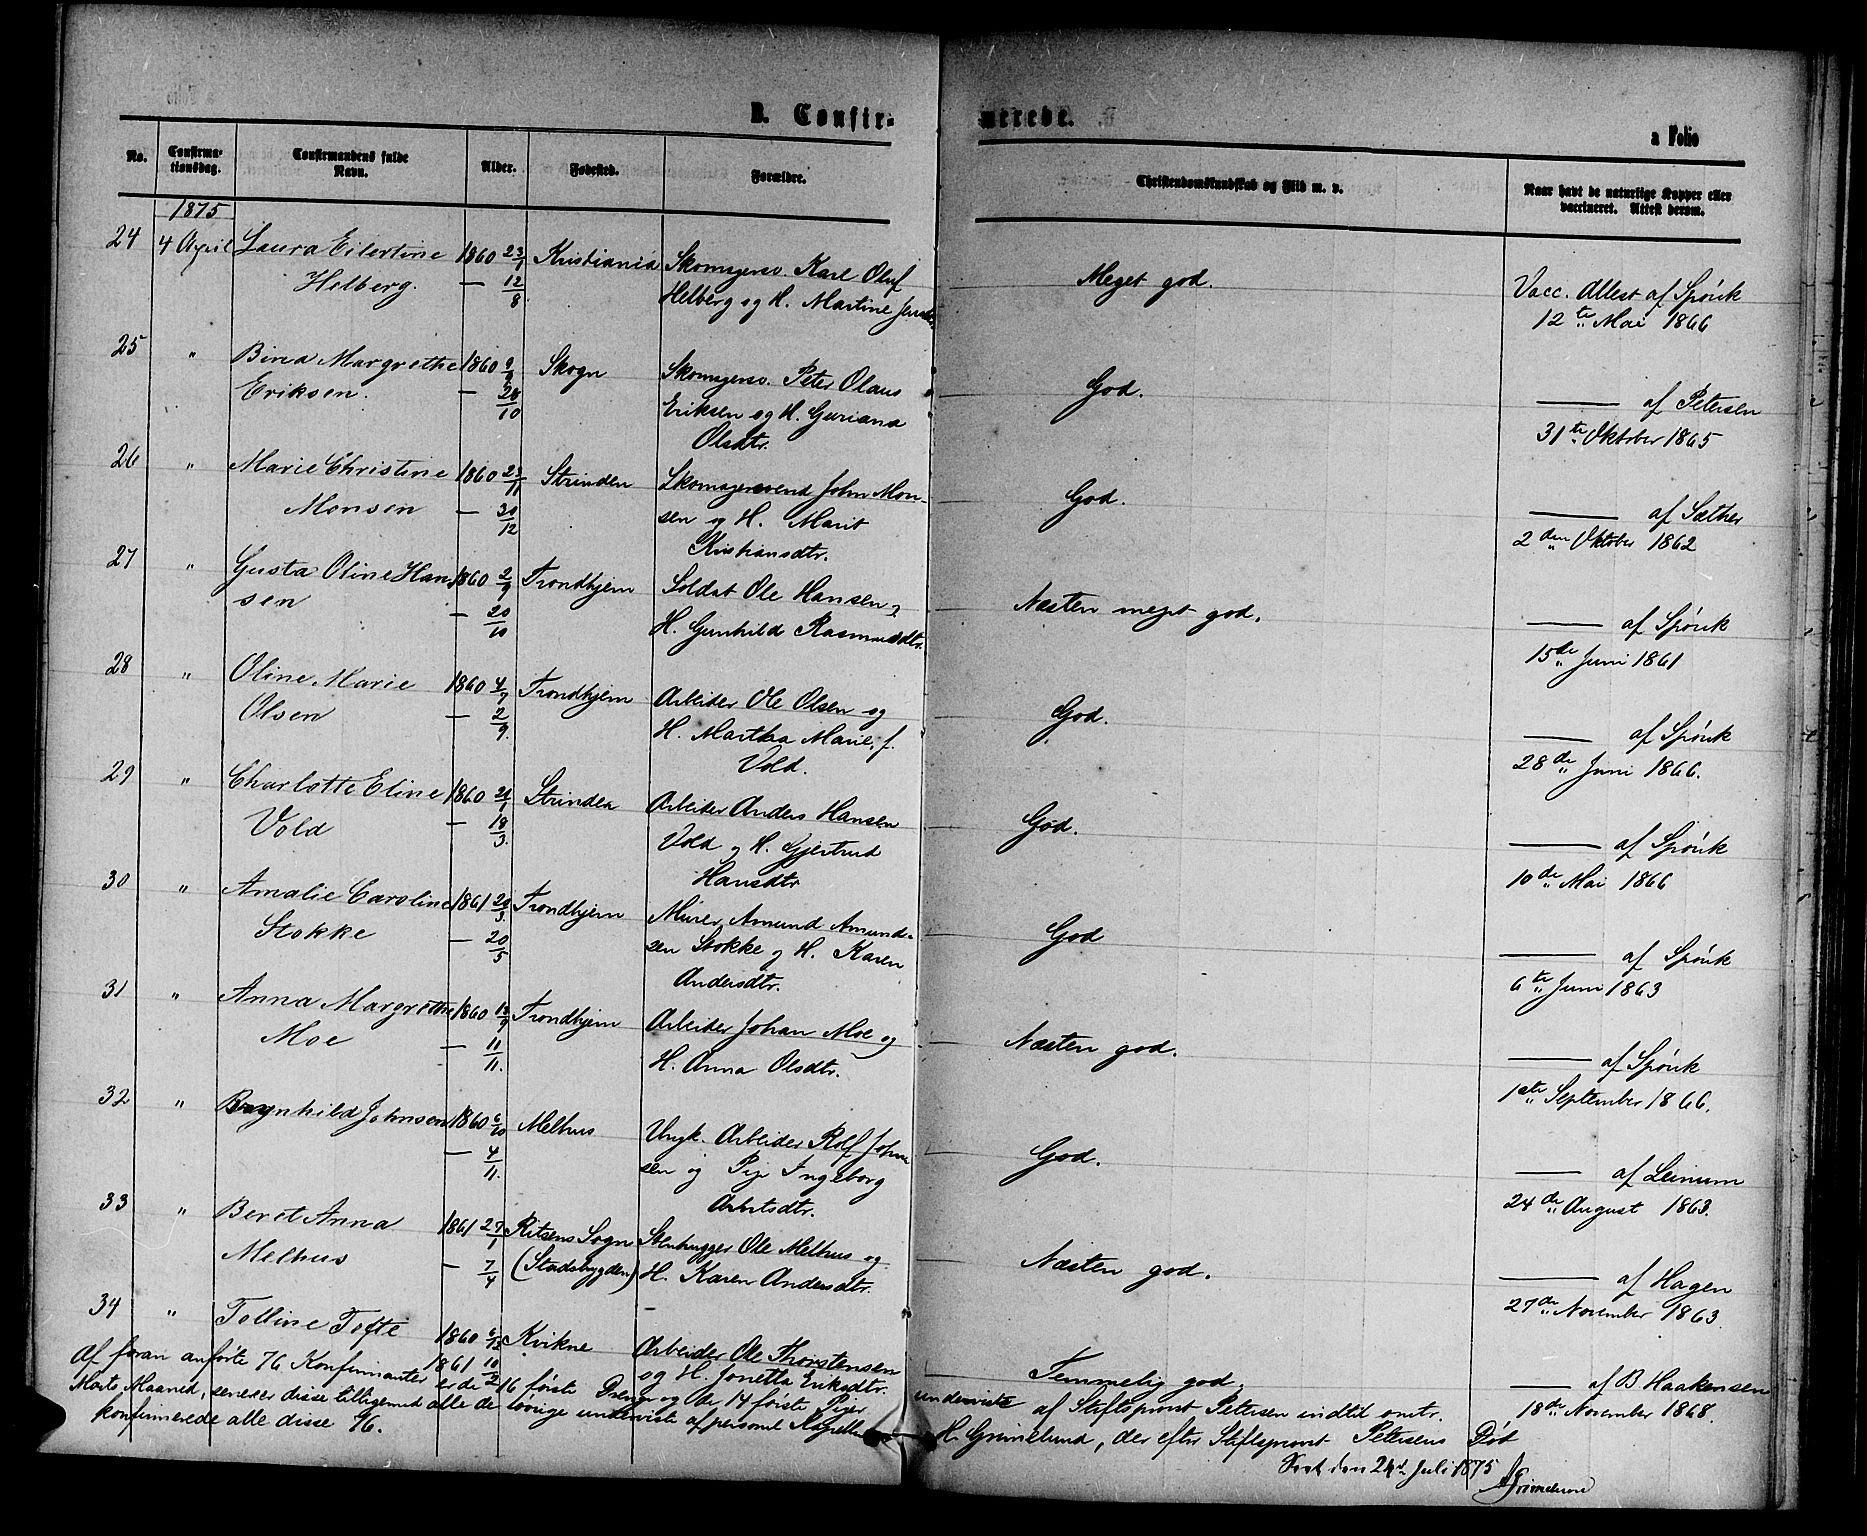 B. Confir-
merede.
a Folio
No.
Confirma-
tionsdag.
Confirmandens fulde
Navn.
Alder.
Fødested.
Forældre.
Christendomskundskab og Flid m. v.
Naar havt de naturlige Kopper eller
vaccineret. Attest derom.
1875
24 4 April Laura Eilertine 1860 23/1 Kristiania Skomagersv. Karl Oluf Meget god. Vacc. Attest af Spørik
Helberg. — 12/8 Helberg og H. Martine 12te Mai 1866
25 " Bina Margrethe 1860 Skogn Skomagersv. Peter Olaus God. — af Petersen
Eriksen. — /10 Eriksen og H. Guriana 31te Oktober 1865
Olsdtr.
26 " Marie Christine 1860 23/11 Strinden Skomagersvend John Mon- God. — af Sæther
Monsen — 30/12 sen og H. Marit 2den Oktober 1862
Kristiansdtr.
27 " Gusta Oline Han- 1860 2/9 Trondhjem Soldat Ole Hansen og Næsten meget god. — af Spørik
sen — 20/10 H. Gunhild Rasmusdtr. 15de Juni 1861
28 " Oline Marie 1860 4/7 Trondhjem Arbeider Ole Olsen og God. — af Spørik
Olsen — 2/9. H. Martha Marie, f. 28de Juni 1866.
Vold.
29 " Charlotte Eline 1860 Strinden Arbeider Anders Hansen God. — af Spørik
Vold — 18/3. Vold og H. Gjertrud 10de Mai 1866
Hansdtr
30 " Amalie Caroline 1861 Trondhjem Murer Amund Amund- God — af Spørik
Stokke — 20/5 sen Stokke og H. Karen 6te Juni 1863
Andersdtr.
31 " Anna Margrethe 1860 Trondhjem Arbeider Johan Moe og Næsten god. — af Spørik
Moe — 11/11. H. Anna Olsdtr. 1ste September 1866.
32 " Brynhild Johnsen 1860 6/10 Melhus Ungk. Arbeider Rolf John- God. — af Leinum
— 4/11. sen og Pige Ingeborg 24de August 1863.
33 " Beret Anna 1861 27/1 Ritsens Sogn Stenhugger Ole Melhus og Næsten god. — af Hagen
Melhus — 7/4 (Stadsbygden) H. Karen Andersdtr. 27de November 1863.
34 " Tolline Tofte 1860 6/12 Kvikne Arbeider Ole Thorstensen Temmelig god. — af B Haakensen
1861 10/2 og H. Jonetta Eriksdtr. 18de November 1868.
Af foran anførte 76 Konfirmanter er de 16 første Drenge og de 14 første Piger underviste af Stiftsprovst Petersen indtil omtr.
Marts Maaned, senere disse tilligemed alle de øvrige underviste af personel Kapellan H. Grimelund, der efter Stiftsprovst Petersens Død
konfirmerede alle disse 76.
den 24d. Juli 1875
Grimelund